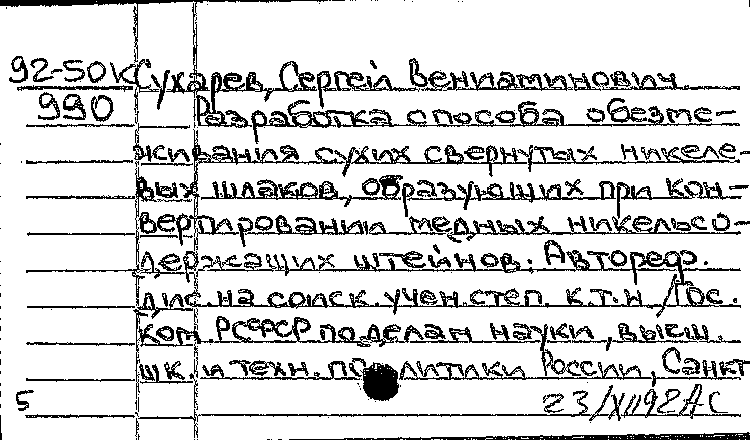 92-50К Сухарев, Сергей Вениаминович
990 Разработка способа обезме-
живания сухих свернутых никеле-
вых шлаков, образующих при кон-
вертировании медных никельсо-
держащих штейнов: Автореф.
дис. на соиск. учен. степ. к.т.н. /Гос.
ком. РСФСР по делам науки, высш.
шк. и техн. политики России, Санкт
5 23/XII92 АС